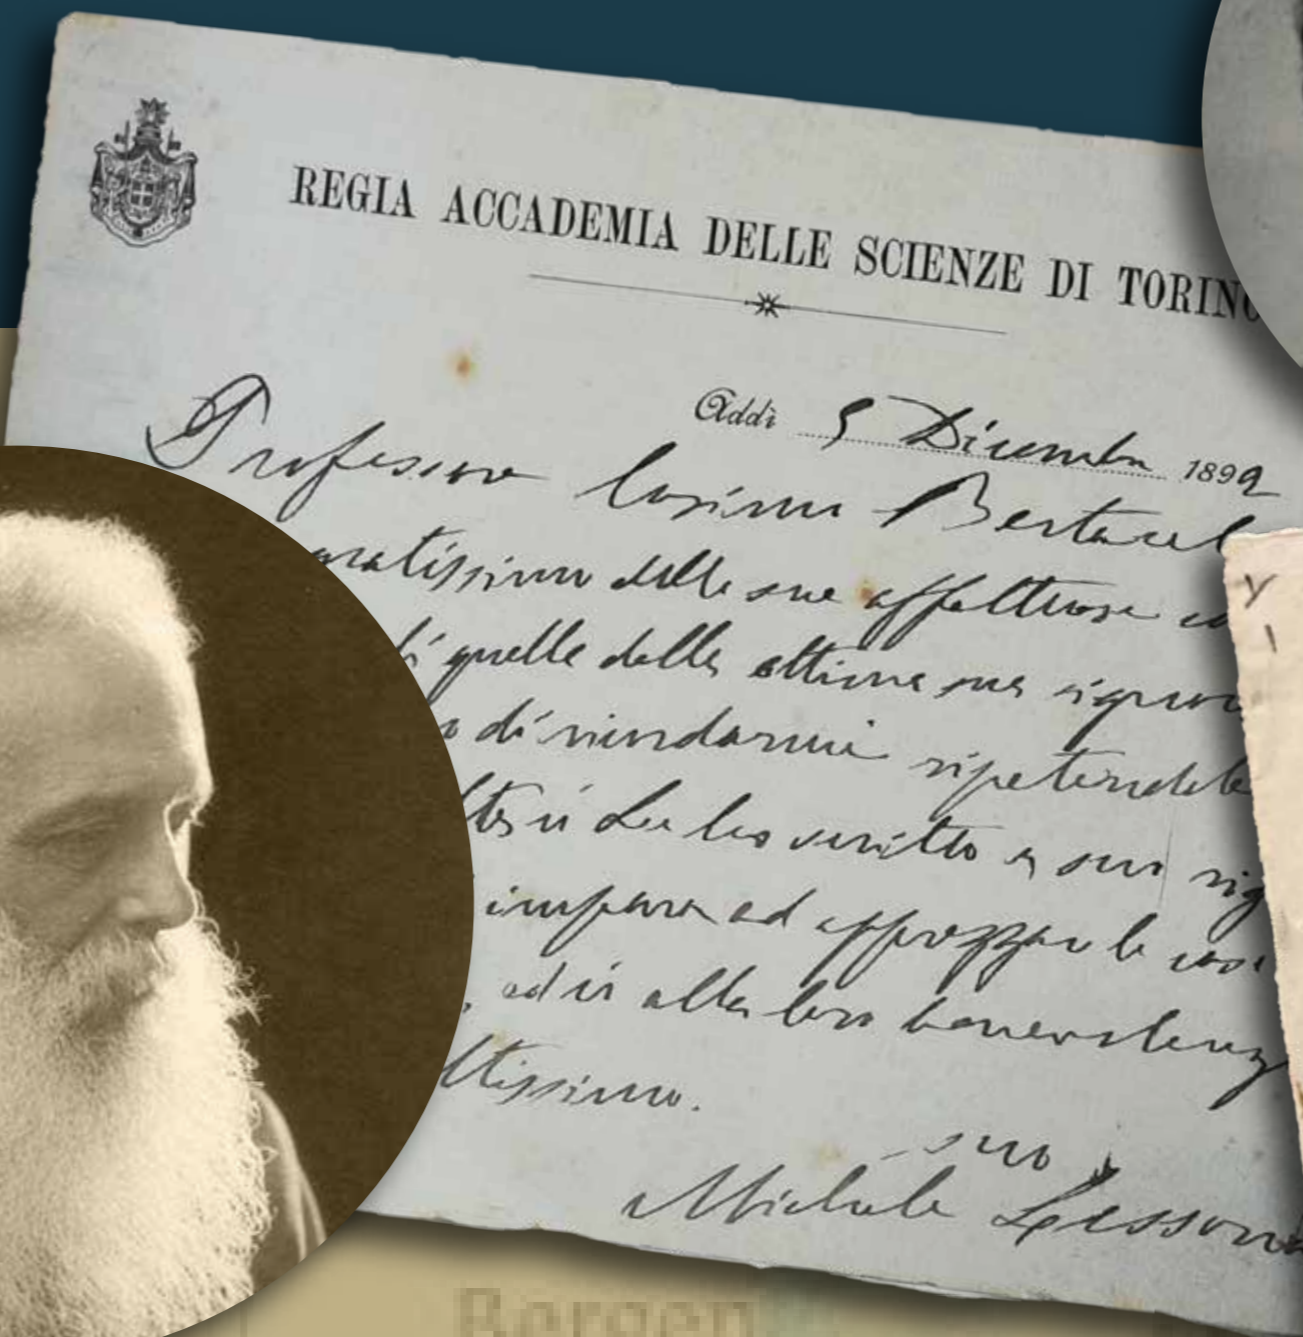 REGIA ACCADEMIA DELLE SCIENZE DI TORINO
Addì 5 Dicembre 1892
Professore Cosimo Bertacch
gratissimo delle sue affettuose
di quelle della ottima sua signora
di ricordarmi ripetendole
Le ho scritto a suo
impara ad apprezzare le
ed è alla loro benevolenz
ltissimo.
suo
Michele Lessona
Bergen